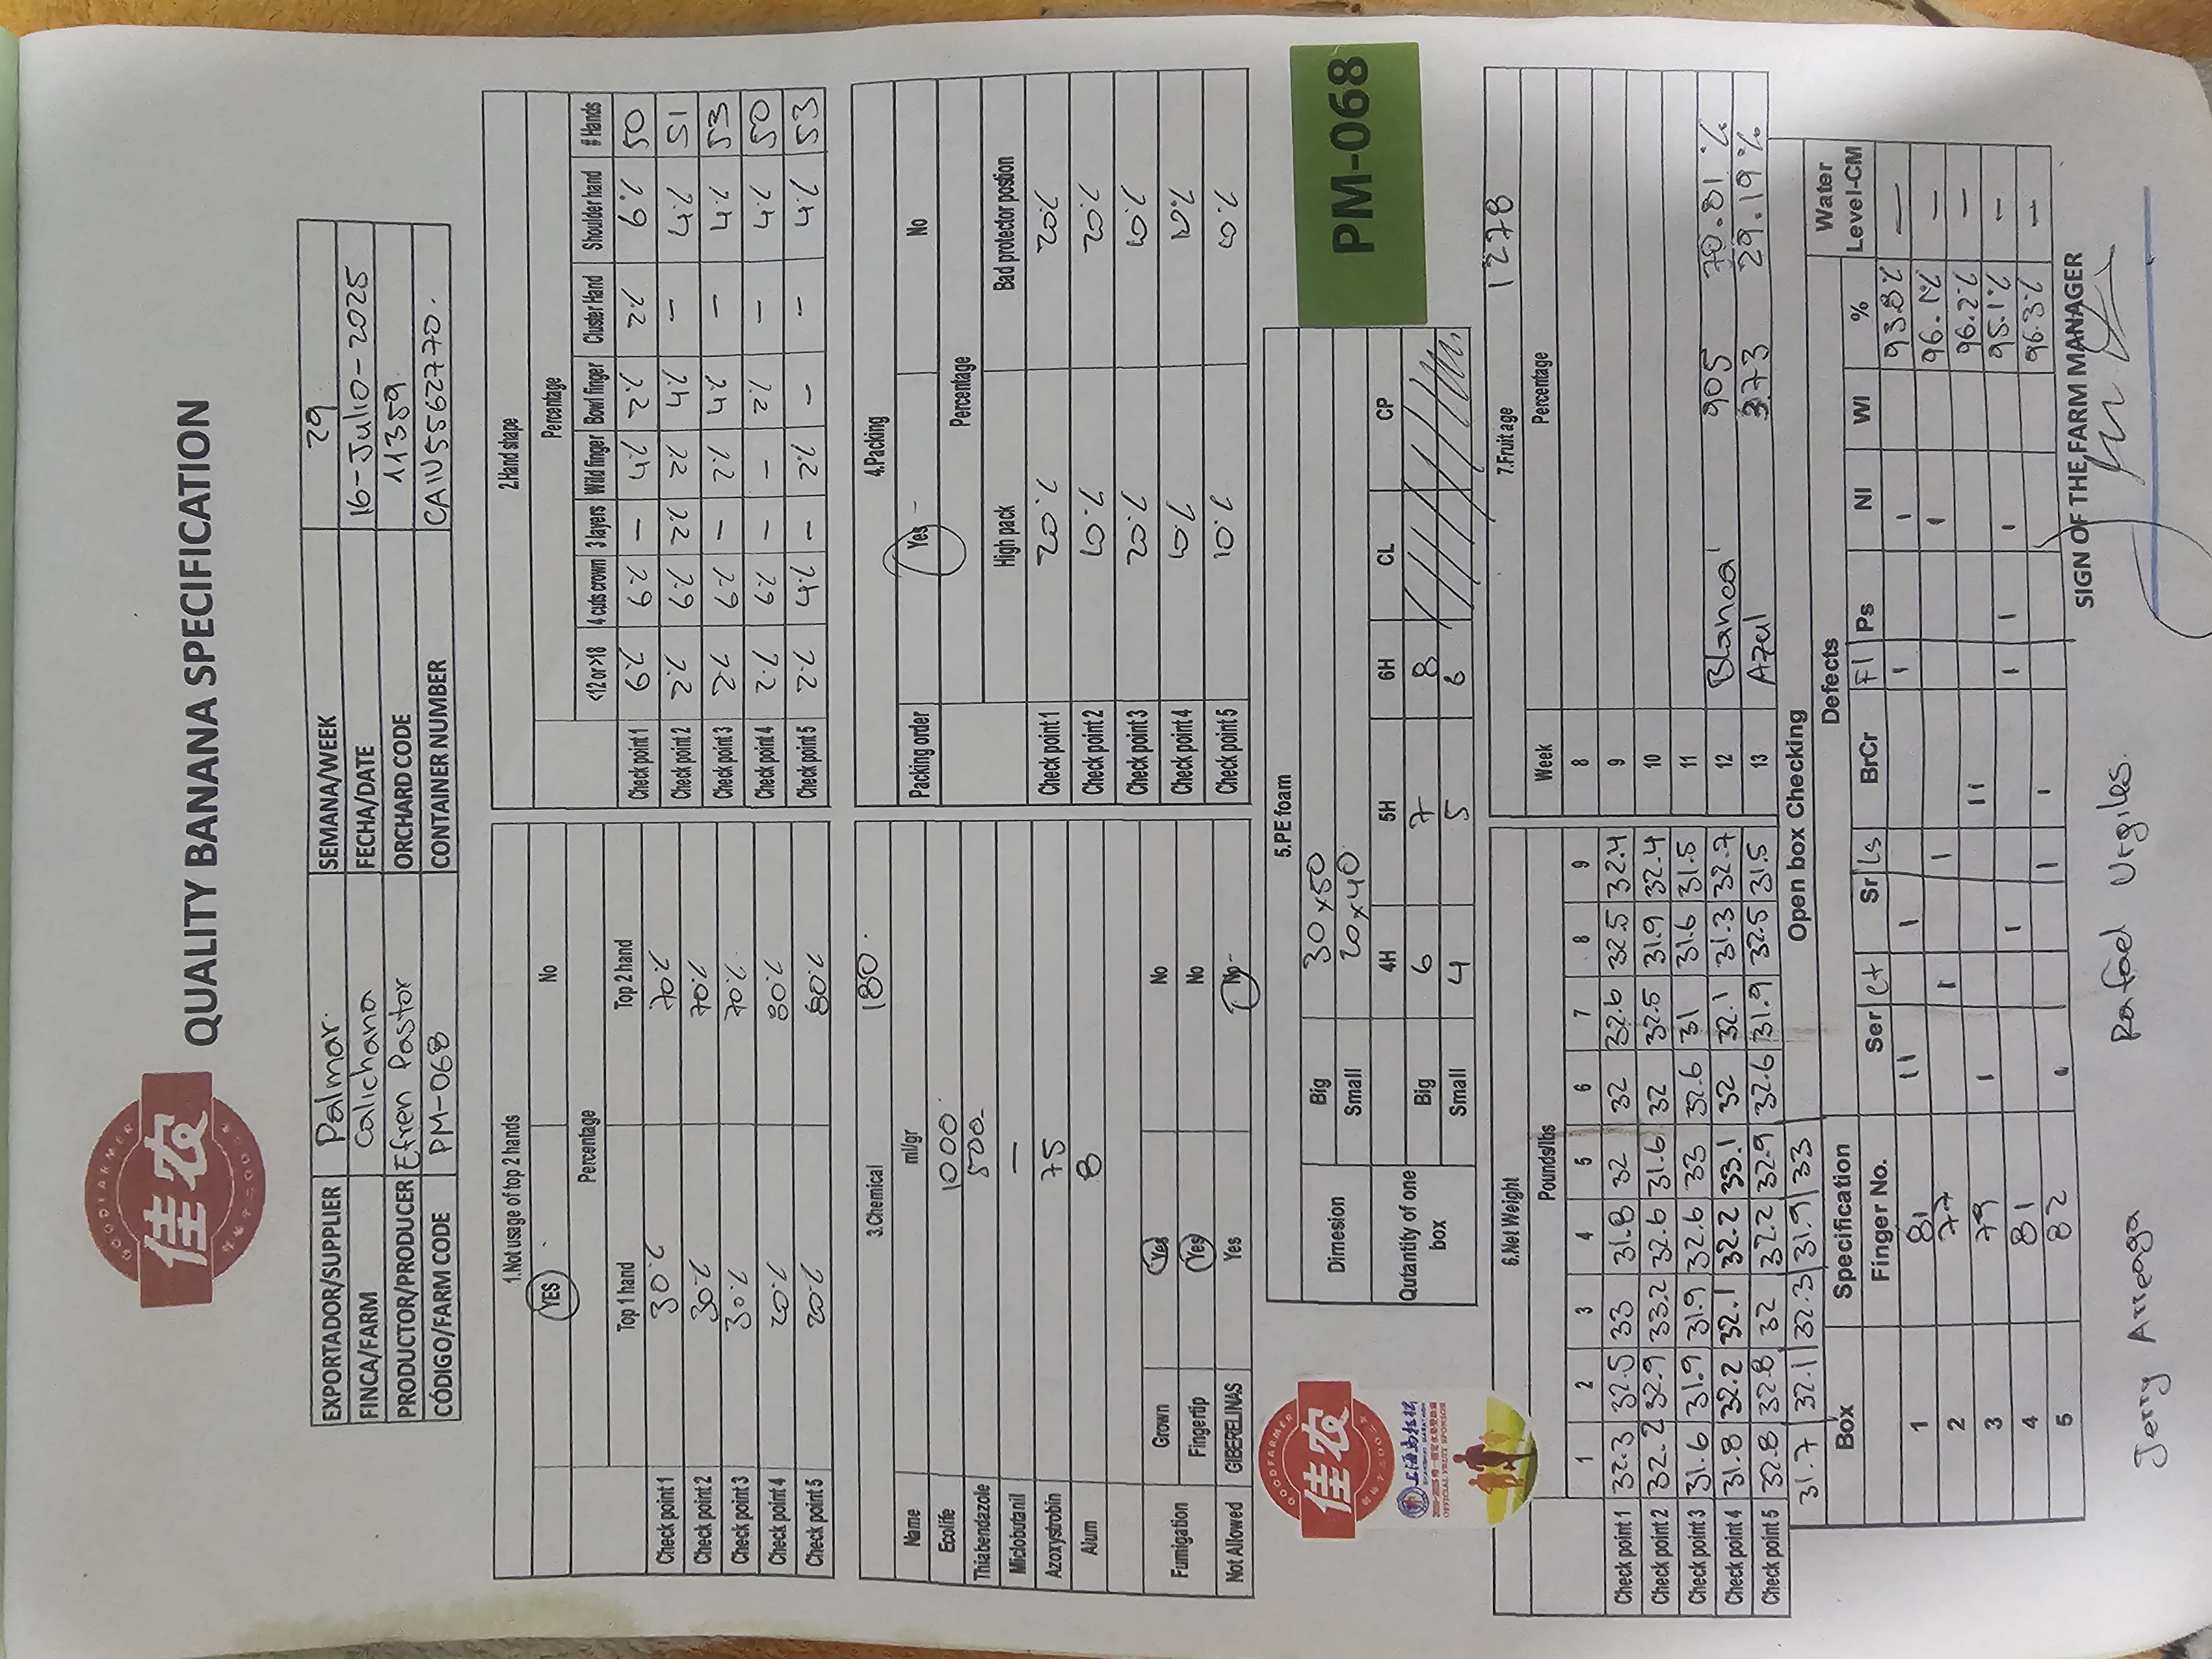 GOODFARMER
佳农
QUALITY BANANA SPECIFICATION
EXPORTADOR/SUPPLIER Palmar. SEMANA/WEEK 29
FINCA/FARM Calichana FECHA/DATE 16-Julio-2025
PRODUCTOR/PRODUCER Efren Pastor ORCHARD CODE 11359
CÓDIGO/FARM CODE PM-068 CONTAINER NUMBER CAIU5562770.
1.Not usage of top 2 hands
YES No
Percentage
Top 1 hand Top 2 hand
Check point 1 30% 70%
Check point 2 30% 70%
Check point 3 30% 70%
Check point 4 20% 80%
Check point 5 20% 80%
2.Hand shape
Percentage
<12 or >18 4 cuts crown 3 layers Wild finger Bowl finger Cluster Hand Shoulder hand # Hands
Check point 1 6% 6% – 4% 2% 2% 6% 50
Check point 2 2% 6% 2% 2% 4% – 4% 51
Check point 3 2% 6% – 2% 4% – 4% 53
Check point 4 2% 6% – – 2% – 4% 50
Check point 5 2% 4% – 2% – – 4% 53
3.Chemical 180.
Name ml/gr
Ecolife 1000
Thiabendazole 500-
Miclobutanil —
Azoxystrobin 75
Alum 8
Fumigation Grown Yes No
Fingertip Yes No
Not Allowed GIBERELINAS Yes No-
4.Packing
Packing order Yes – No
Percentage
High pack Bad protector postion
Check point 1 20% 20%
Check point 2 10% 20%
Check point 3 20% 10%
Check point 4 10% 10%
Check point 5 10% 10%
GOODFARMER
佳农
上海马拉松
SHANGHAI MARATHON
OFFICIAL FRUIT SPONSOR
5.PE foam
Dimesion Big 30x50
Small 20x40
Qutantity of one box 4H 5H 6H CL CP
Big 6 7 8
Small 4 5 6
PM-068
6.Net Weight
Pounds/lbs
1 2 3 4 5 6 7 8 9
Check point 1 32.3 32.5 33 31.8 32 32 32.6 32.5 32.4
Check point 2 32.2 32.9 33.2 32.6 31.6 32 32.5 31.9 32.4
Check point 3 31.6 31.9 31.9 32.6 33 32.6 31 31.6 31.5
Check point 4 31.8 32.2 32.1 32.2 33.1 32 32.1 31.3 32.7
Check point 5 32.8 32.8 32 32.2 32.9 32.6 31.9 32.5 31.5
31.7 32.1 32.3 31.9 33
7.Fruit age 1278
Week Percentage
8
9
10
11
12 Blanca 905 70.81 %
13 Azul 373 29.19%
Open box Checking
Box Specification Defects Water Level-CM
Finger No. Ser et Sr Ls BrCr Fl Ps NI WI %
1 81 11 1 1 1 93.8% —
2 77 1 1 1 96.1% —
3 79 1 11 96.2% —
4 81 1 1 1 1 95.1% —
5 82 1 1 1 96.3% —
SIGN OF THE FARM MANAGER
Jerry Arreaga Rafael Urgiles.